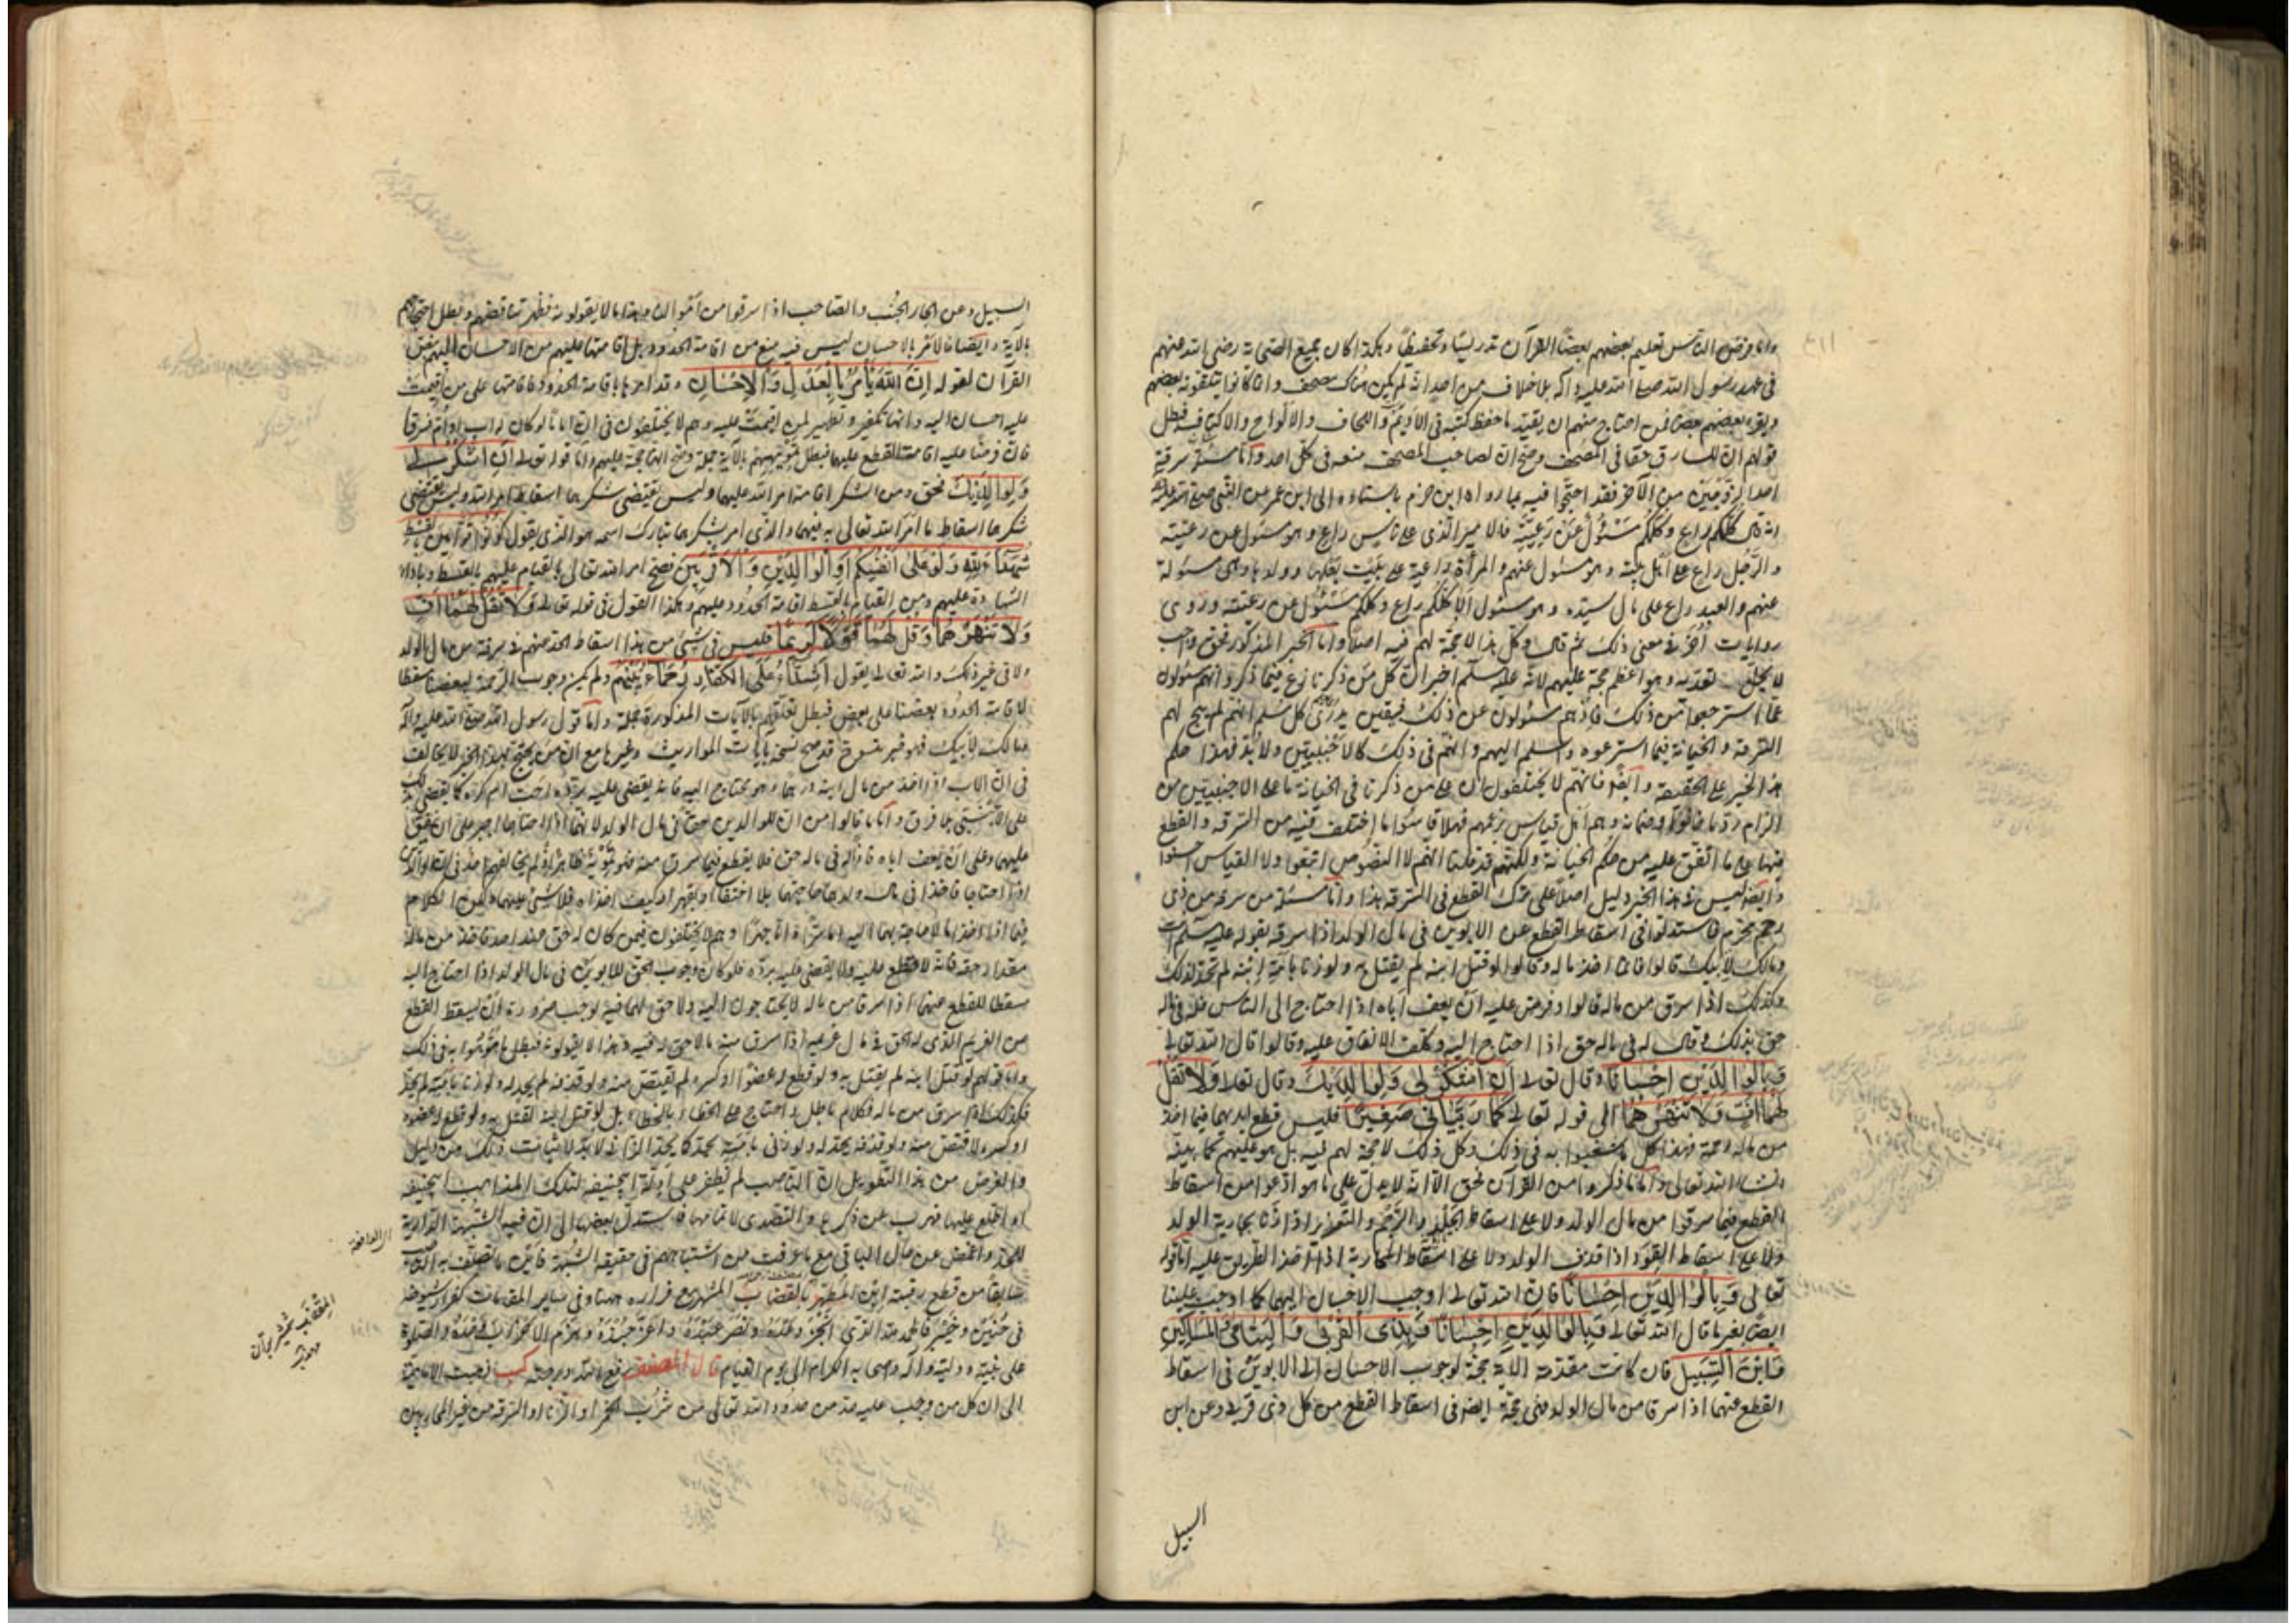 وانما فرض الناس تعليم بعضهم بعضا القرآن تدريسا وتحفيظا وهكذا كان جميع الصحابة رضي الله عنهم
في عهد رسول الله صلى الله عليه وآله بلا خلاف من احد انه لم يكن هناك مصحف وانما كانوا يتلقونه بعضهم
ويقرء بعضهم بعضا فمن احتاج منهم ان يقيد ما حفظ كتبه في الاديم واللخاف والالواح والاكتاف فبطل
قولهم ان للسارق حقا في المصحف وصح ان لصاحب المصحف منعه من كل احد واما مسئلة سرقة
احد الزوجين من الآخر فقد احتجوا فيه بما رواه ابن حزم باسناده الى ابن عمر عن النبي صلى الله عليه
انه قال كلكم راع وكلكم مسئول عن رعيته فالامير الذي على الناس راع وهو مسئول عن رعيته
والرجل راع على اهل بيته وهو مسئول عنهم والمرأة راعية على بيت بعلها وولدها وهي مسئولة
عنهم والعبد راع على مال سيده وهو مسئول الا فكلكم راع وكلكم مسئول عن رعيته وروى
روايات أخر في معنى ذلك ثم قال وكل هذا لا حجة لهم فيه اصلا واما الخبر المذكور فحق واجب
لا يحل تعديه وهو اعظم حجة عليهم لانه عليه سلم اخبر ان كل من ذكرنا راع فيما ذكر وانهم مسئولون
عما استرعوا من ذلك فاذ هم مسئولون عن ذلك فبيقين يدرى كل مسلم انهم لم يبح لهم
السرقة والخيانة فيما استرعوه واسلم اليهم وانهم في ذلك كالاجنبيين ولا بد فهذا حكم
هذا الخبر على الحقيقة وايضا فانهم لا يختلفون ان على من ذكرنا في الخيانة ما على الاجنبيين من
الزام رد ما خانوا وضمانه وهم اهل قياس بزعمهم فهلا قاسوا ما اختلف فيه من السرقة والقطع
فيها على ما اتفق عليه من حكم الخيانة ولكنهم قد قلنا انهم لا النصوص اتبعوا ولا القياس احسنوا
وايضا ليس في هذا الخبر دليل اصلا على ترك القطع في السرقة هذا واما مسئلة من سرق من ذي
رحم محرم فاستدلوا في اسقاط القطع عن الابوين في مال الولد اذا سرقه بقوله عليه سلم انت
ومالك لابيك قالوا فانما اخذ ماله وقالوا لو قتل ابنه لم يقتل به ولو زنا بامة ابنه لم تحد لذلك
وكذلك اذا سرق من ماله قالوا وفرض عليه ان يعف اباه اذا احتاج الى الناس فله في ماله
حق بذلك وقال له في ماله حق اذا احتاج اليه وكلف الانفاق عليه وقالوا قال الله تعالى
وبالوالدين احسانا وقال تعالى ان اشكر لي ولوالديك وقال تعالى ولا تقل
لهما اف ولا تنهرهما الى قوله تعالى كما ربياني صغيرا فليس قطع ايديهما فيما اخذ
من ماله رحمة فهذا كل ما شغبوا به في ذلك وكل ذلك لا حجة لهم فيه بل هو عليهم كما نبينه
انشاء الله تعالى واما ما ذكروا من القرآن فحق الا انه لا يدل على ما هو ادعوا من اسقاط
القطع فيما سرقوا من مال الولد ولا على اسقاط الجلد والرجم والتغريز اذا زنا بجارية الولد
ولا على اسقاط القود اذا قذف الولد ولا على اسقاط المحاربة اذا قصد الطريق عليه اما قوله
تعالى وبالوالدين احسانا فان الله تعالى اوجب الاحسان اليهما كما اوجب علينا
ايضا لغيرهما قال الله تعالى وبالوالدين احسانا وبذي القربى واليتامى والمساكين
وابن السبيل فان كانت مقدمة الآية حجة لوجوب الاحسان الى الابوين في اسقاط
القطع عنهما اذا سرقا من مال الولد فهي حجة ايضا في اسقاط القطع من كل ذي قربى وعن ابن
السبيل
السبيل وعن الجار الجنب والصاحب اذا سرقوا من اموالنا وهذا ما لا يقولونه فظهر تناقضهم وبطل احتجاجهم
بالآية وايضا فالامر بالاحسان ليس فيه منع من اقامة الحدود بل اقامتها عليهم من الاحسان اليهم بنص
القرآن لقوله ان الله يأمر بالعدل والاحسان وقد امرنا باقامة الحدود فاقامتها على من اقيمت
عليه احسان اليه وانها تكفير وتطهير لمن اقيمت عليه وهم لا يختلفون في ان اماما لو كان له اب او ام فسرقا
فان فرضا عليه اقامة القطع عليهما فبطل تمويههم بالآية جملة وصح انها حجة عليهم واما قوله تعالى ان اشكر لي
ولوالديك فحق ومن الشكر اقامة امر الله عليهما وليس يقتضي شكرهما اسقاط امر الله وليس يقتضى
شكرهما اسقاط ما امر الله تعالى به فيهما والذي امر بشكرهما تبارك اسمه هو الذي يقول كونوا قوامين بالقسط
شهداء لله ولو على انفسكم او الوالدين والاقربين فصح امر الله تعالى بالقيام عليهم بالقسط وباداء
الشهادة عليهم ومن القيام بالقسط اقامة الحدود عليهم وهكذا القول في قوله تعالى فلا تقل لهما اف
ولا تنهرهما وقل لهما قولا كريما فليس في شيء من هذا اسقاط الحد عنهم في سرقة من مال الولد
ولا في غير ذلك والله تعالى يقول اشداء على الكفار رحماء بينهم ولم يكن وجوب الرحمة لبعضنا مسقطا
لاقامة الحدود بعضنا على بعض فبطل تعلقهم بالآيات المذكورة جملة واما قول رسول الله صلى الله عليه وآله
ومالك لابيك فهو خبر منسوخ قد صح نسخه بآيات المواريث وغيرها مع ان من يحتج بهذا الخبر لا يخالف
في ان الاب اذا اخذ من مال ابنه درهما وهو محتاج اليه فانه يقضى عليه برده احب ام كره كما يقضى بذلك
على الاجنبي بلا فرق واما ما قالوا من ان للوالدين حقا في مال الولد لانهما اذا احتاجا اجبر على ان ينفق
عليهما وعلى ان يعف اباه فاذ له في ماله حق فلا يقطع فيما سرق منه فهو تمويه ظاهر اذ لم يخالفهم احد في ان الوالدين
اذا احتاجا فاخذا من مال ولدهما حاجتهما بلا اختفاء او بقهر او كيف اخذاه فلا شيء عليهما ولكن الكلام
فيما اذا اخذا ما لا حاجة بهما اليه اما سرا واما جهرا وهم لا يختلفون فيمن كان له حق عند احد فاخذ من ماله
مقدار حقه فانه لا يقطع عليه ولا يقضى عليه برده فلو كان وجوب الحق للابوين في مال الولد اذا احتاج اليه
مسقطا للقطع عنهما اذا سرقا من ماله لا يحتاجون اليه ولا حق لهما فيه لوجب ضرورة ان يسقط القطع
عن الغريم الذي له الحق في مال غريمه اذا سرق منه ما لا حق له فيه وهذا لا يقولونه فبطل ما موهوا به في ذلك
واما قولهم لو قتل ابنه لم يقتل به ولو قطع له عضوا او كسره لم يقتص منه ولو قذفه لم يحد له ولو زنا بابنته لم يحد
فكذلك اذا سرق من ماله فكلام باطل واحتاج على الخطاء بالخطاء بل لو قتل ابنه لقتل به ولو قطع له عضوه
او كسره لاقتص منه ولو قذفه يحد له ولو زنى بابنته يحد كما يحد الزاني لا بد لاثبات ذلك من دليل
والغرض من هذا التطويل ان الناصب لم يظفر على ادلة ابي حنيفة لتلك المذاهب السخيفة
او اطلع عليها فهرب عن ذكرها والتصدى لاتمامها فاستدل بعضها الى ان فيه الشبهة الدارية
للحد واغمض عن مآل الباقي مع ما عرفت من اشتباههم في حقيقة الشبهة فاين ما تصلف به
سابقا من قطع رقبة ابن المطهر بالقضاب المشتهر مع فراره ههنا وفي ساير المقامات كفرار شيوخه
في حنين وخيبر فالحمد لله الذي انجز وعده ونصر عبده واعز جنده وهزم الاحزاب وحده والصلوة
على نبيه ووليه وآله وصحابه الكرام الى يوم القيام قال المصنف رفع الله درجته كب ذهبت الامامية
الى ان كل من وجب عليه حد من حدود الله تعالى من شرب الخمر او الزنا او السرقة من غير المحاربين